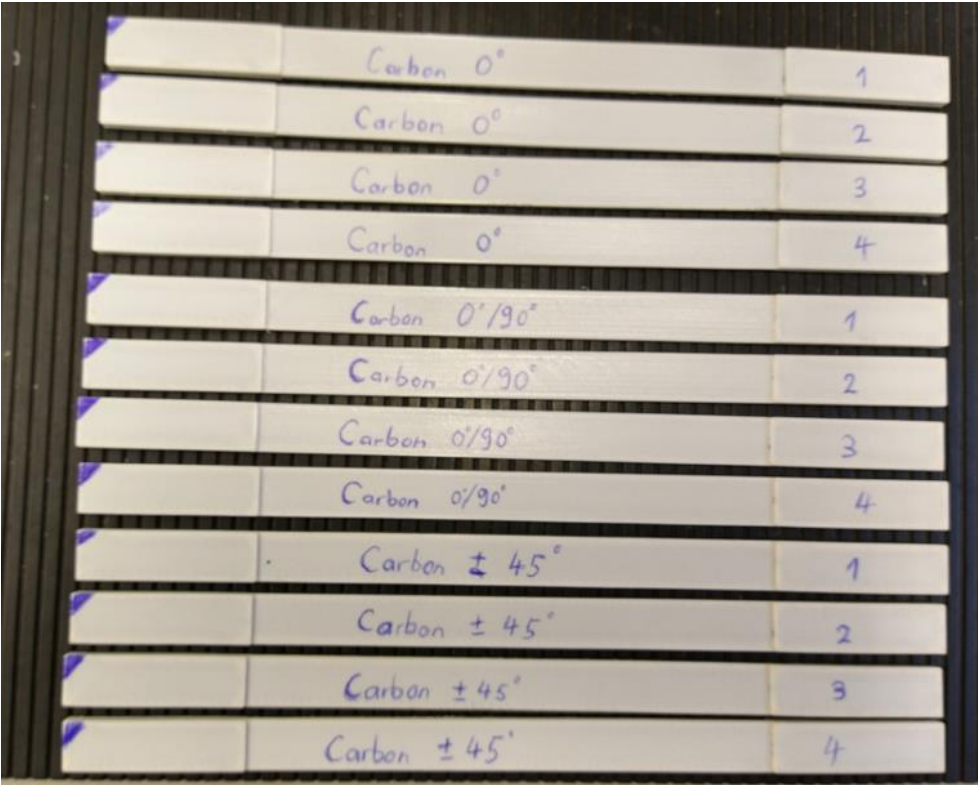 Carbon 0° 1
Carbon 0° 2
Carbon 0° 3
Carbon 0° 4
Carbon 0°/90° 1
Carbon 0°/90° 2
Carbon 0°/90° 3
Carbon 0°/90° 4
Carbon ± 45° 1
Carbon ± 45° 2
Carbon ± 45° 3
Carbon ± 45° 4